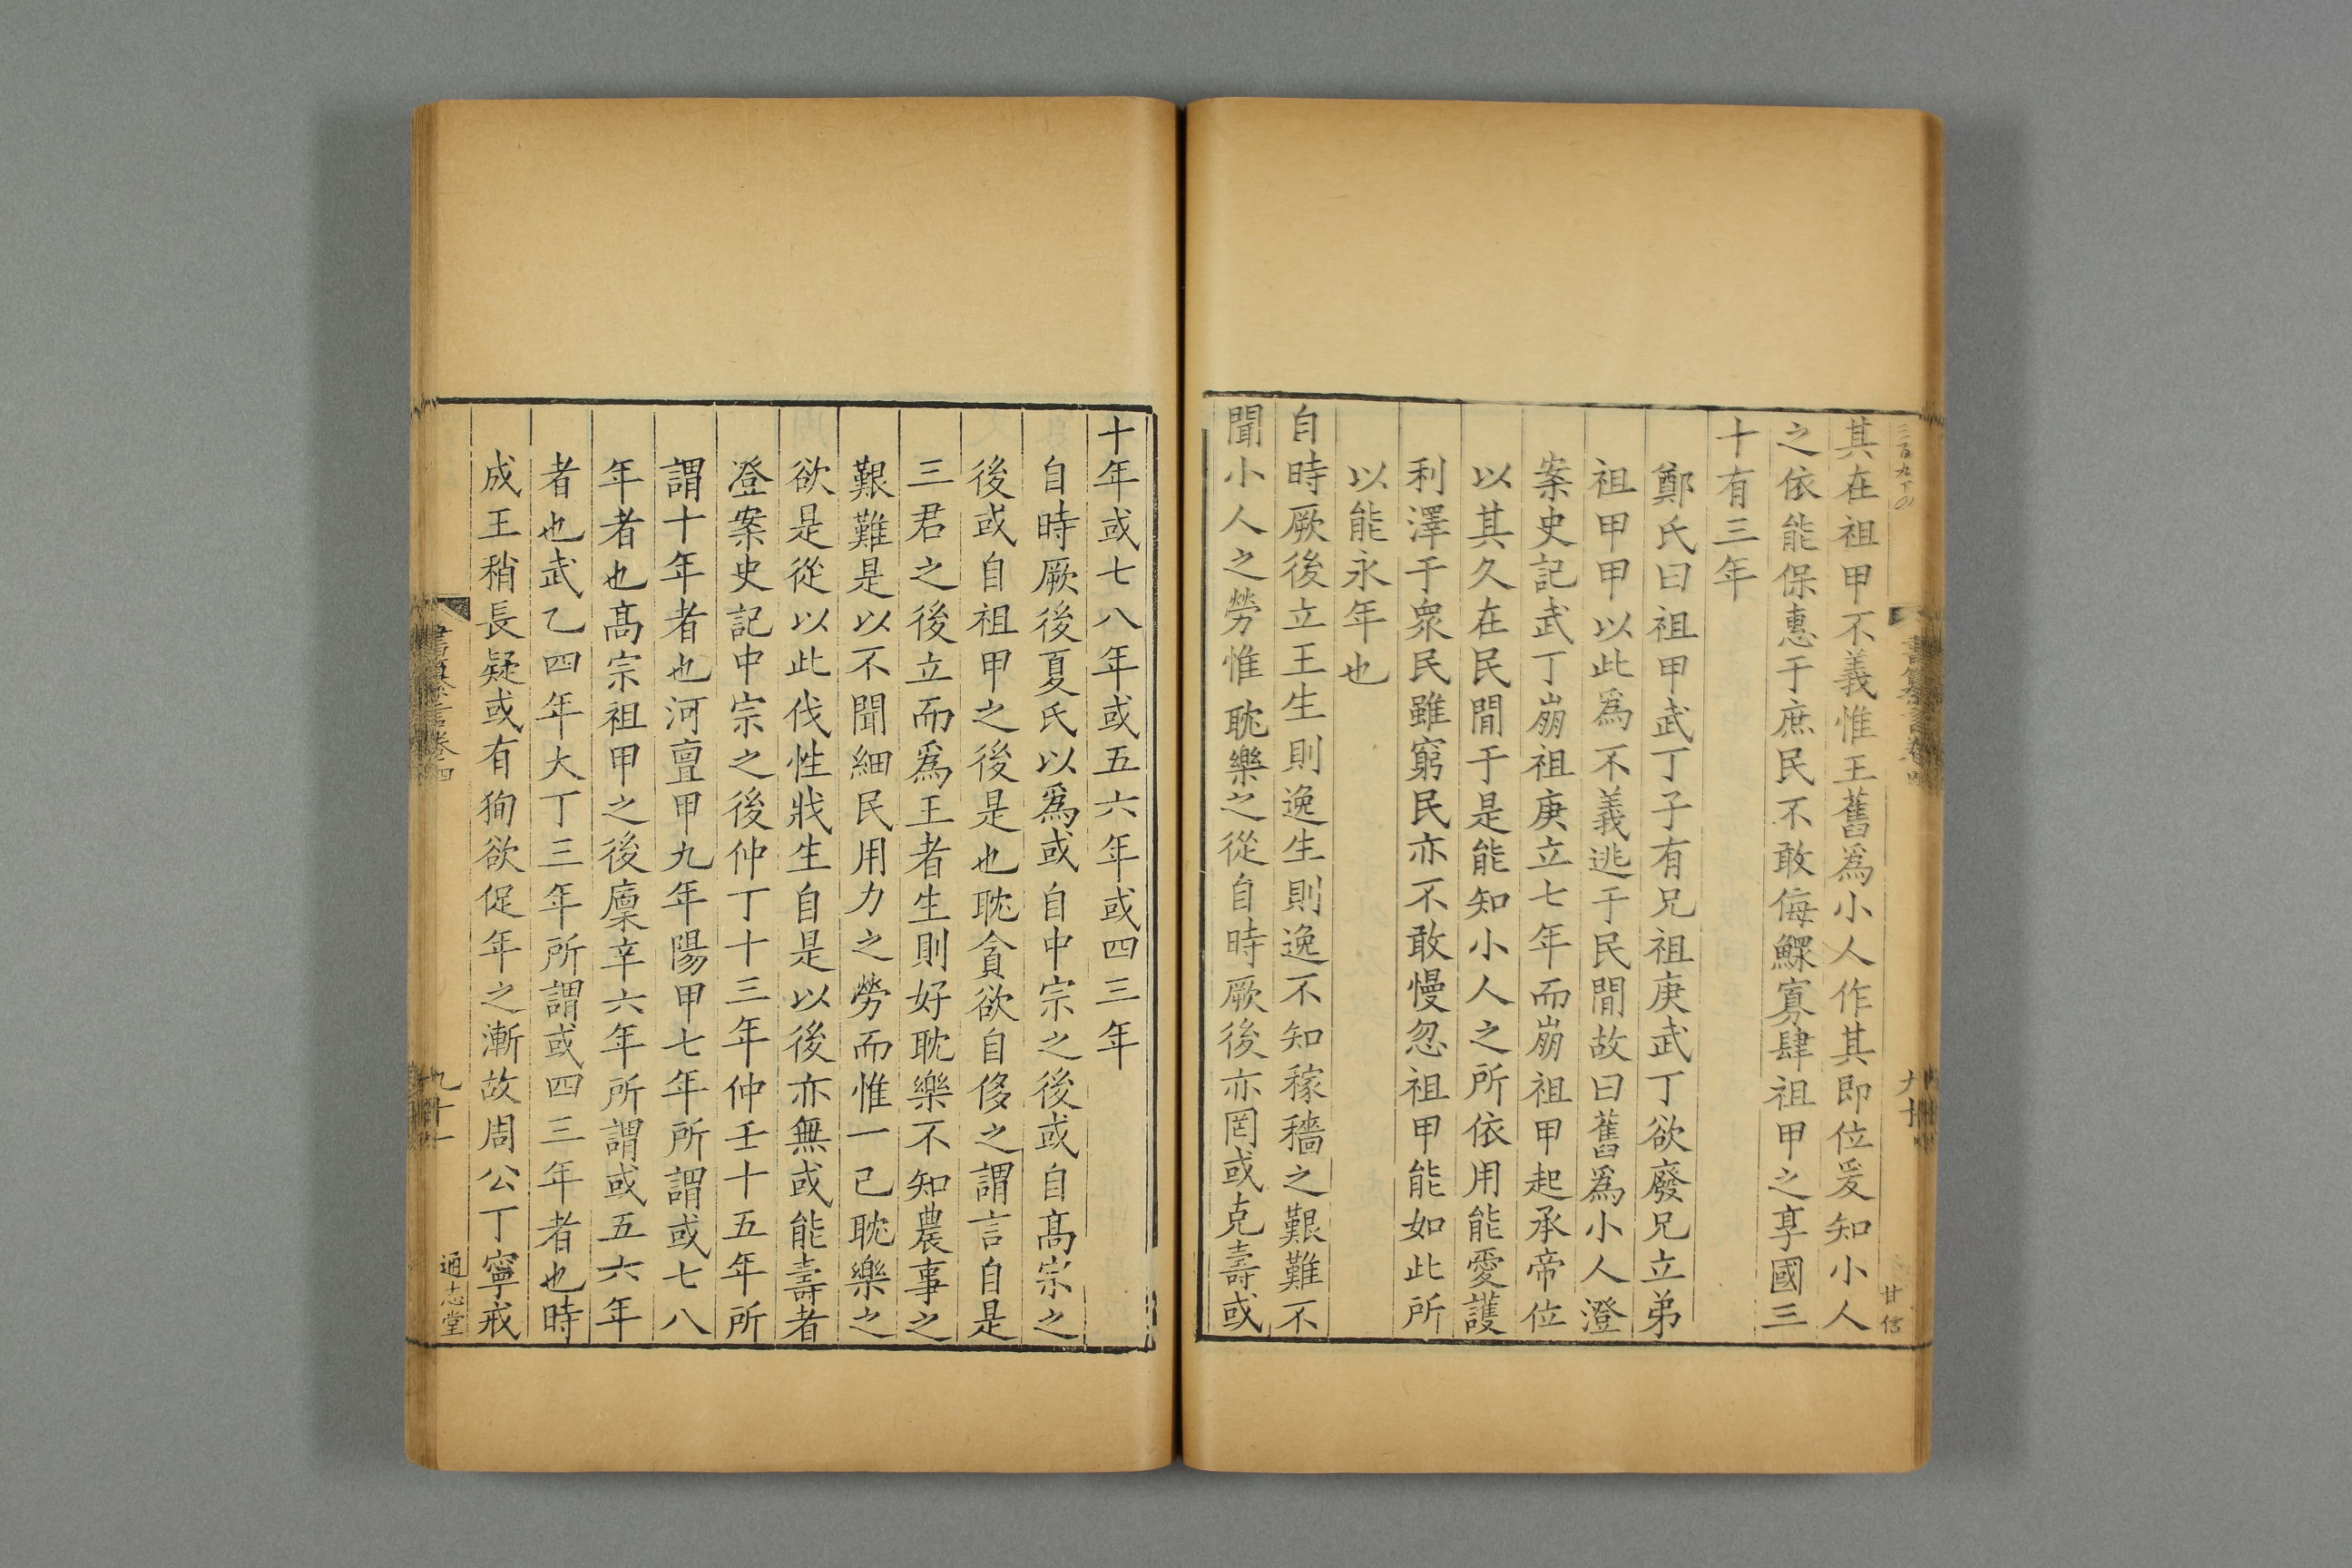 其在祖甲不義惟王舊爲小人作其即位爰知小人
之依能保惠于庶民不敢侮鰥寡肆祖甲之享國三
十有三年
鄭氏曰祖甲武丁子有兄祖庚武丁欲廢兄立弟
祖甲甲以此爲不義逃于民間故曰舊爲小人澄
案史記武丁崩祖庚立七年而崩祖甲起承帝位
以其久在民間于是能知小人之所依用能愛護
利澤于衆民雖窮民亦不敢慢忽祖甲能如此所
以能永年也
自時厥後立王生則逸生則逸不知稼穡之艱難不
聞小人之勞惟耽樂之從自時厥後亦罔或克壽或
十年或七八年或五六年或四三年
自時厥後夏氏以爲或自中宗之後或自高宗之
後或自祖甲之後是也耽貪欲自侈之謂言自是
三君之後立而爲王者生則好耽樂不知農事之
艱難是以不聞細民用力之勞而惟一己耽樂之
欲是從以此伐性戕生自是以後亦無或能壽者
澄案史記中宗之後仲丁十三年仲壬十五年所
謂十年者也河亶甲九年陽甲七年所謂或七八
年者也高宗祖甲之後廩辛六年所謂或五六年
者也武乙四年大丁三年所謂或四三年者也時
成王稍長疑或有徇欲促年之漸故周公丁寧戒
書纂言卷四
九十一
通志堂
三百九十四
書纂言卷四
九十
甘信